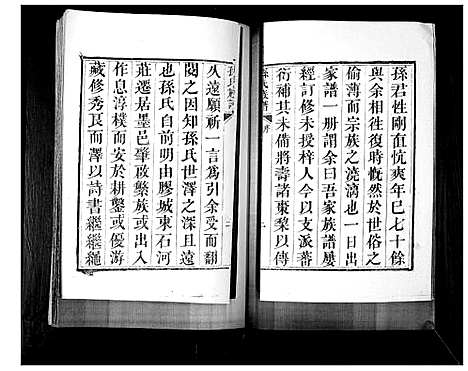 孫君性剛直忼爽年已七十餘
與余相往復時慨然於世俗之
偷薄而宗族之澆漓也一日持
家譜一册謂余曰吾家族譜屢
經訂修未授梓人今以支派蕃
衍補其未備將壽諸棗棃以傳
孫氏族譜 序
久遠願祈一言爲引余受而翻
閱之因知孫氏世澤之深且遠
也孫氏自前明由膠城東石河
莊遷居墨邑肇啟繁族或出入
作息淳樸而安於耕鑿或優游
藏修秀艮而澤以詩書繼繼繩